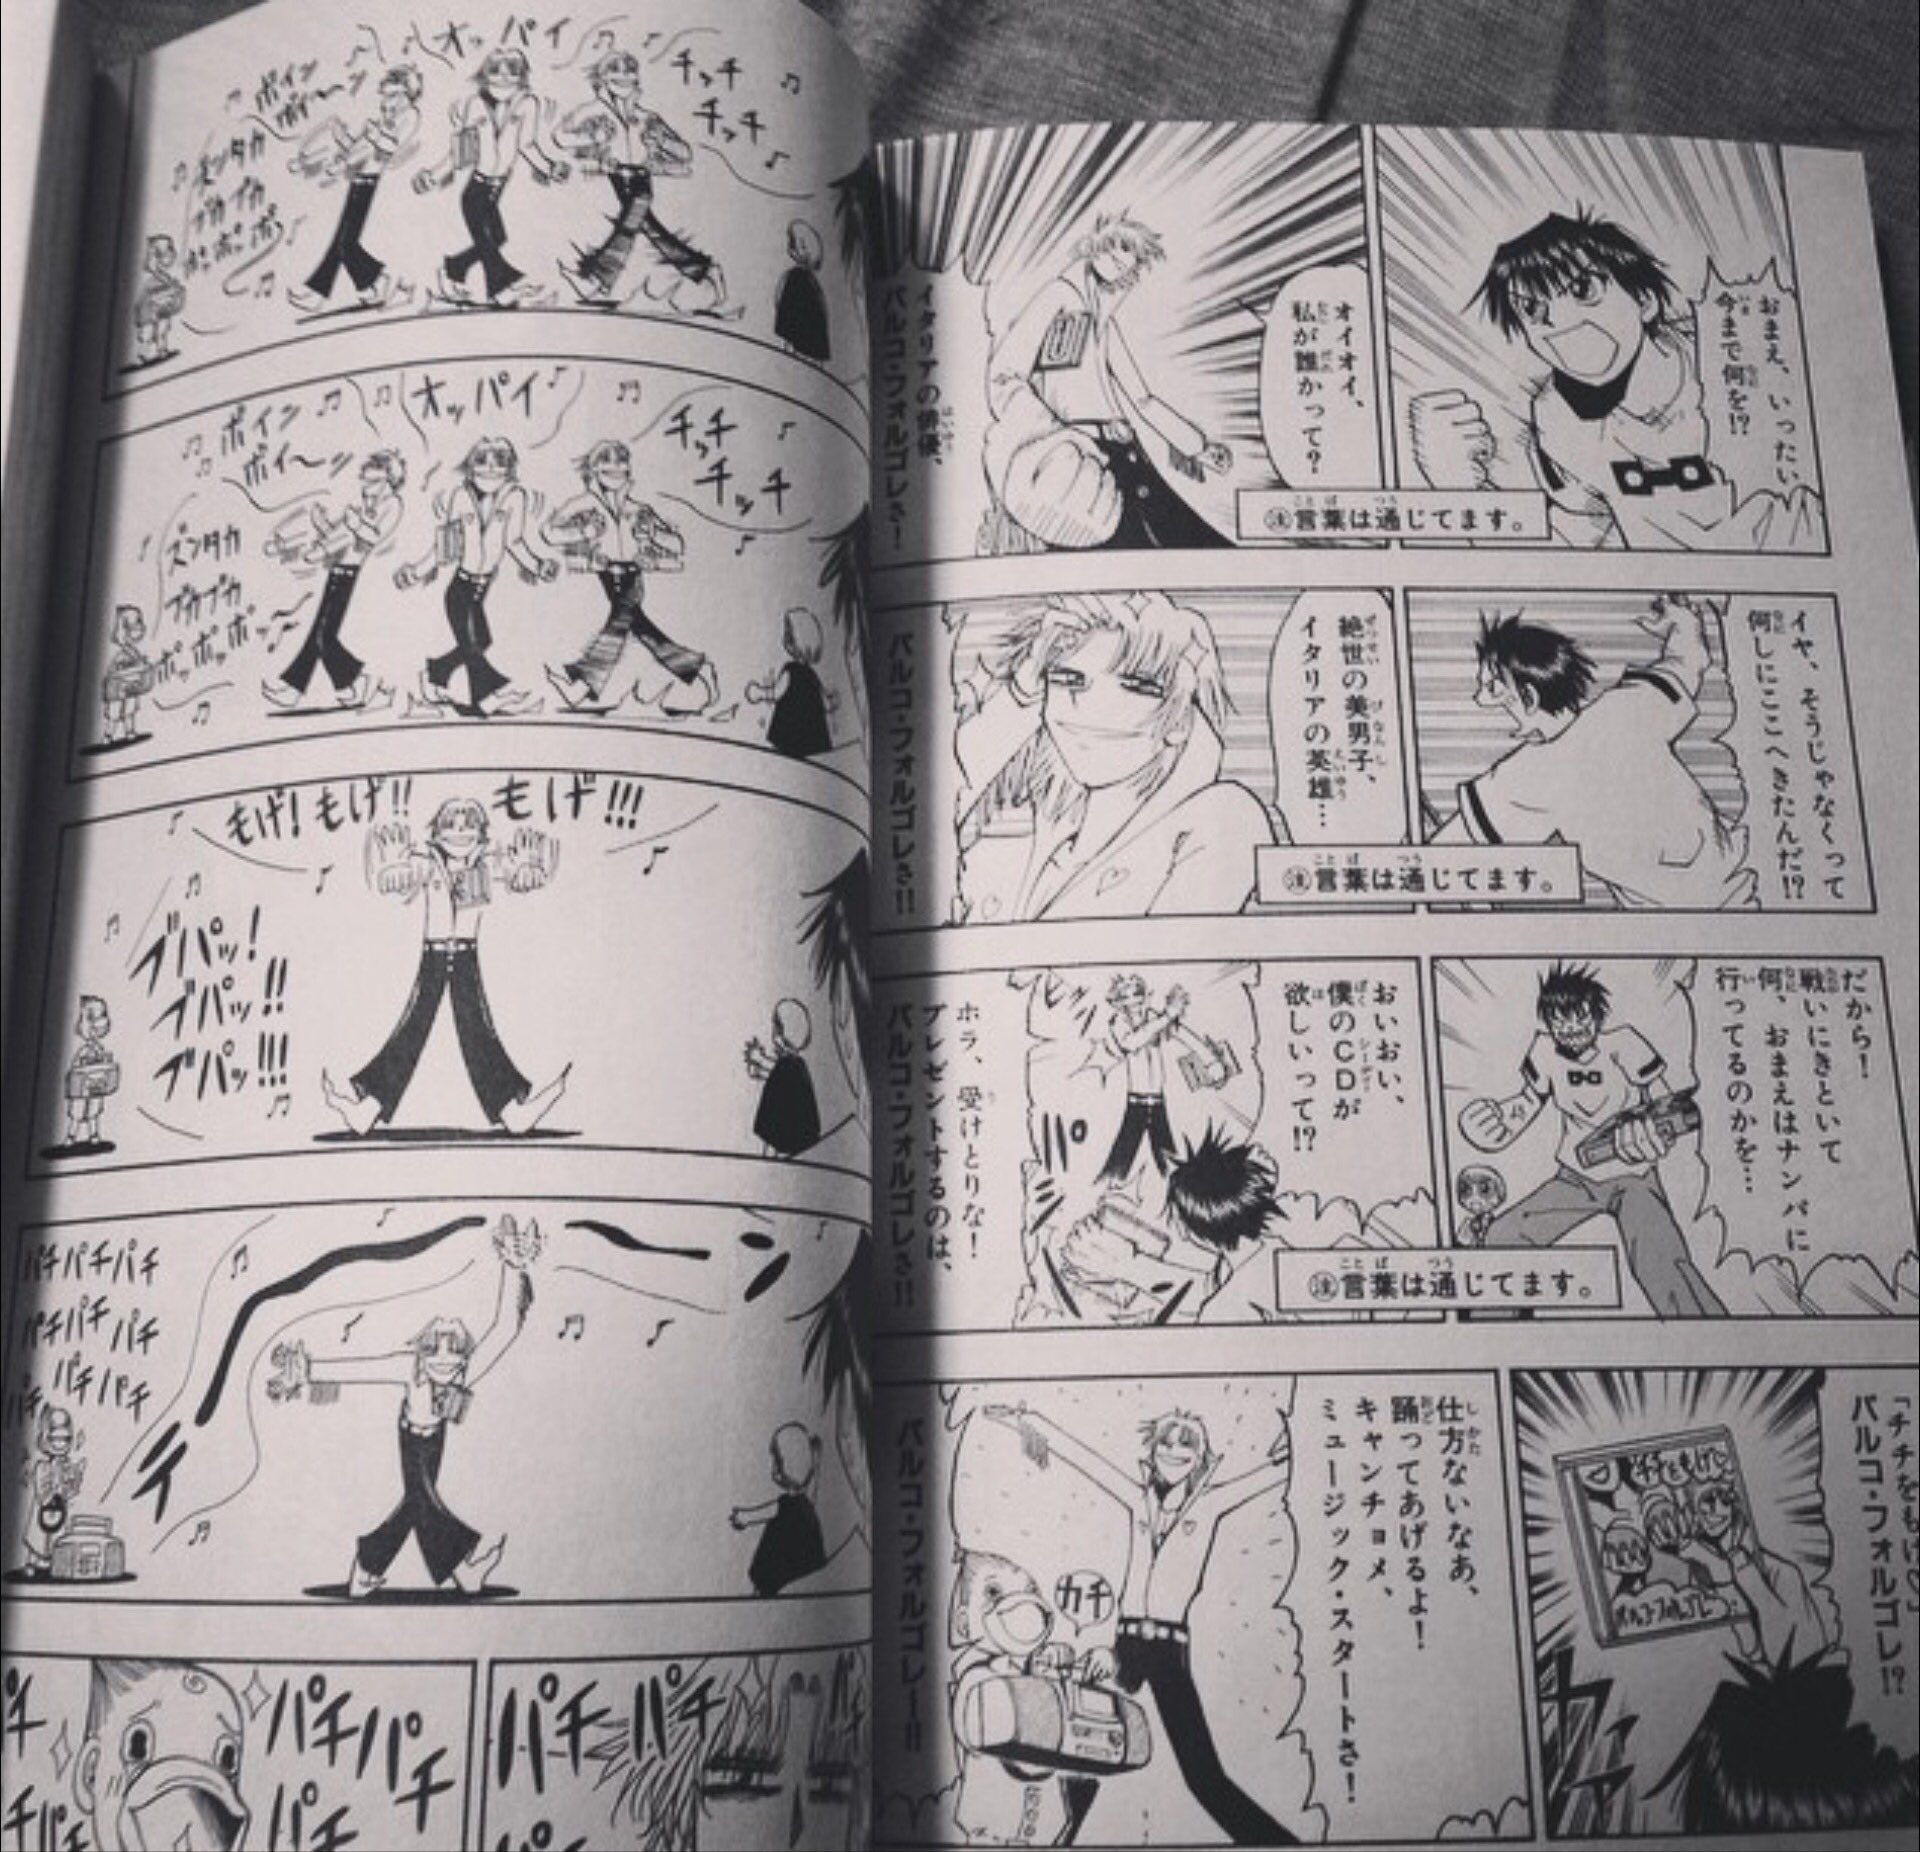 おまえ、いったい
今まで何を!?
オイオイ、
私が誰かって?
イタリアの俳優、
パルコ・フォルゴレさ!
㊟言葉は通じてます。
イヤ、そうじゃなくって
何しにここへきたんだ!?
絶世の美男子、
イタリアの英雄…
パルコ・フォルゴレさ!!
㊟言葉は通じてます。
だから!
戦いにきといて
何、おまえはナンパに
行ってるのかを…
おいおい、
僕のCDが
欲しいって!?
パ
ホラ、受けとりな!
プレゼントするのは、
パルコ・フォルゴレさ!!
㊟言葉は通じてます。
「チチをもげ♡」
パルコ・フォルゴレ!?
チチをもげ♡
パルコ・フォルゴレ
仕方ないなあ、
踊ってあげるよ!
キャンチョメ、
ミュージック・スタートさ!
カチ
パルコ・フォルゴレー!!
チッチ
チッチ
オッパイ
ボイン
ボイ〜ン
ズンタカ
ブカブカ
ポッポッポッ
チッチ
チッチ
オッパイ
ボイン
ボイ〜ン
ズンタカ
ブカブカ
ポッポッポッ〜
もげ! もげ!! もげ!!!
ブパッ!
ブパッ!!
ブパッ!!!
パチパチパチ
パチパチ パチ
パチパチ
パチ
パチ
パチ
パチ
パチ
パチ